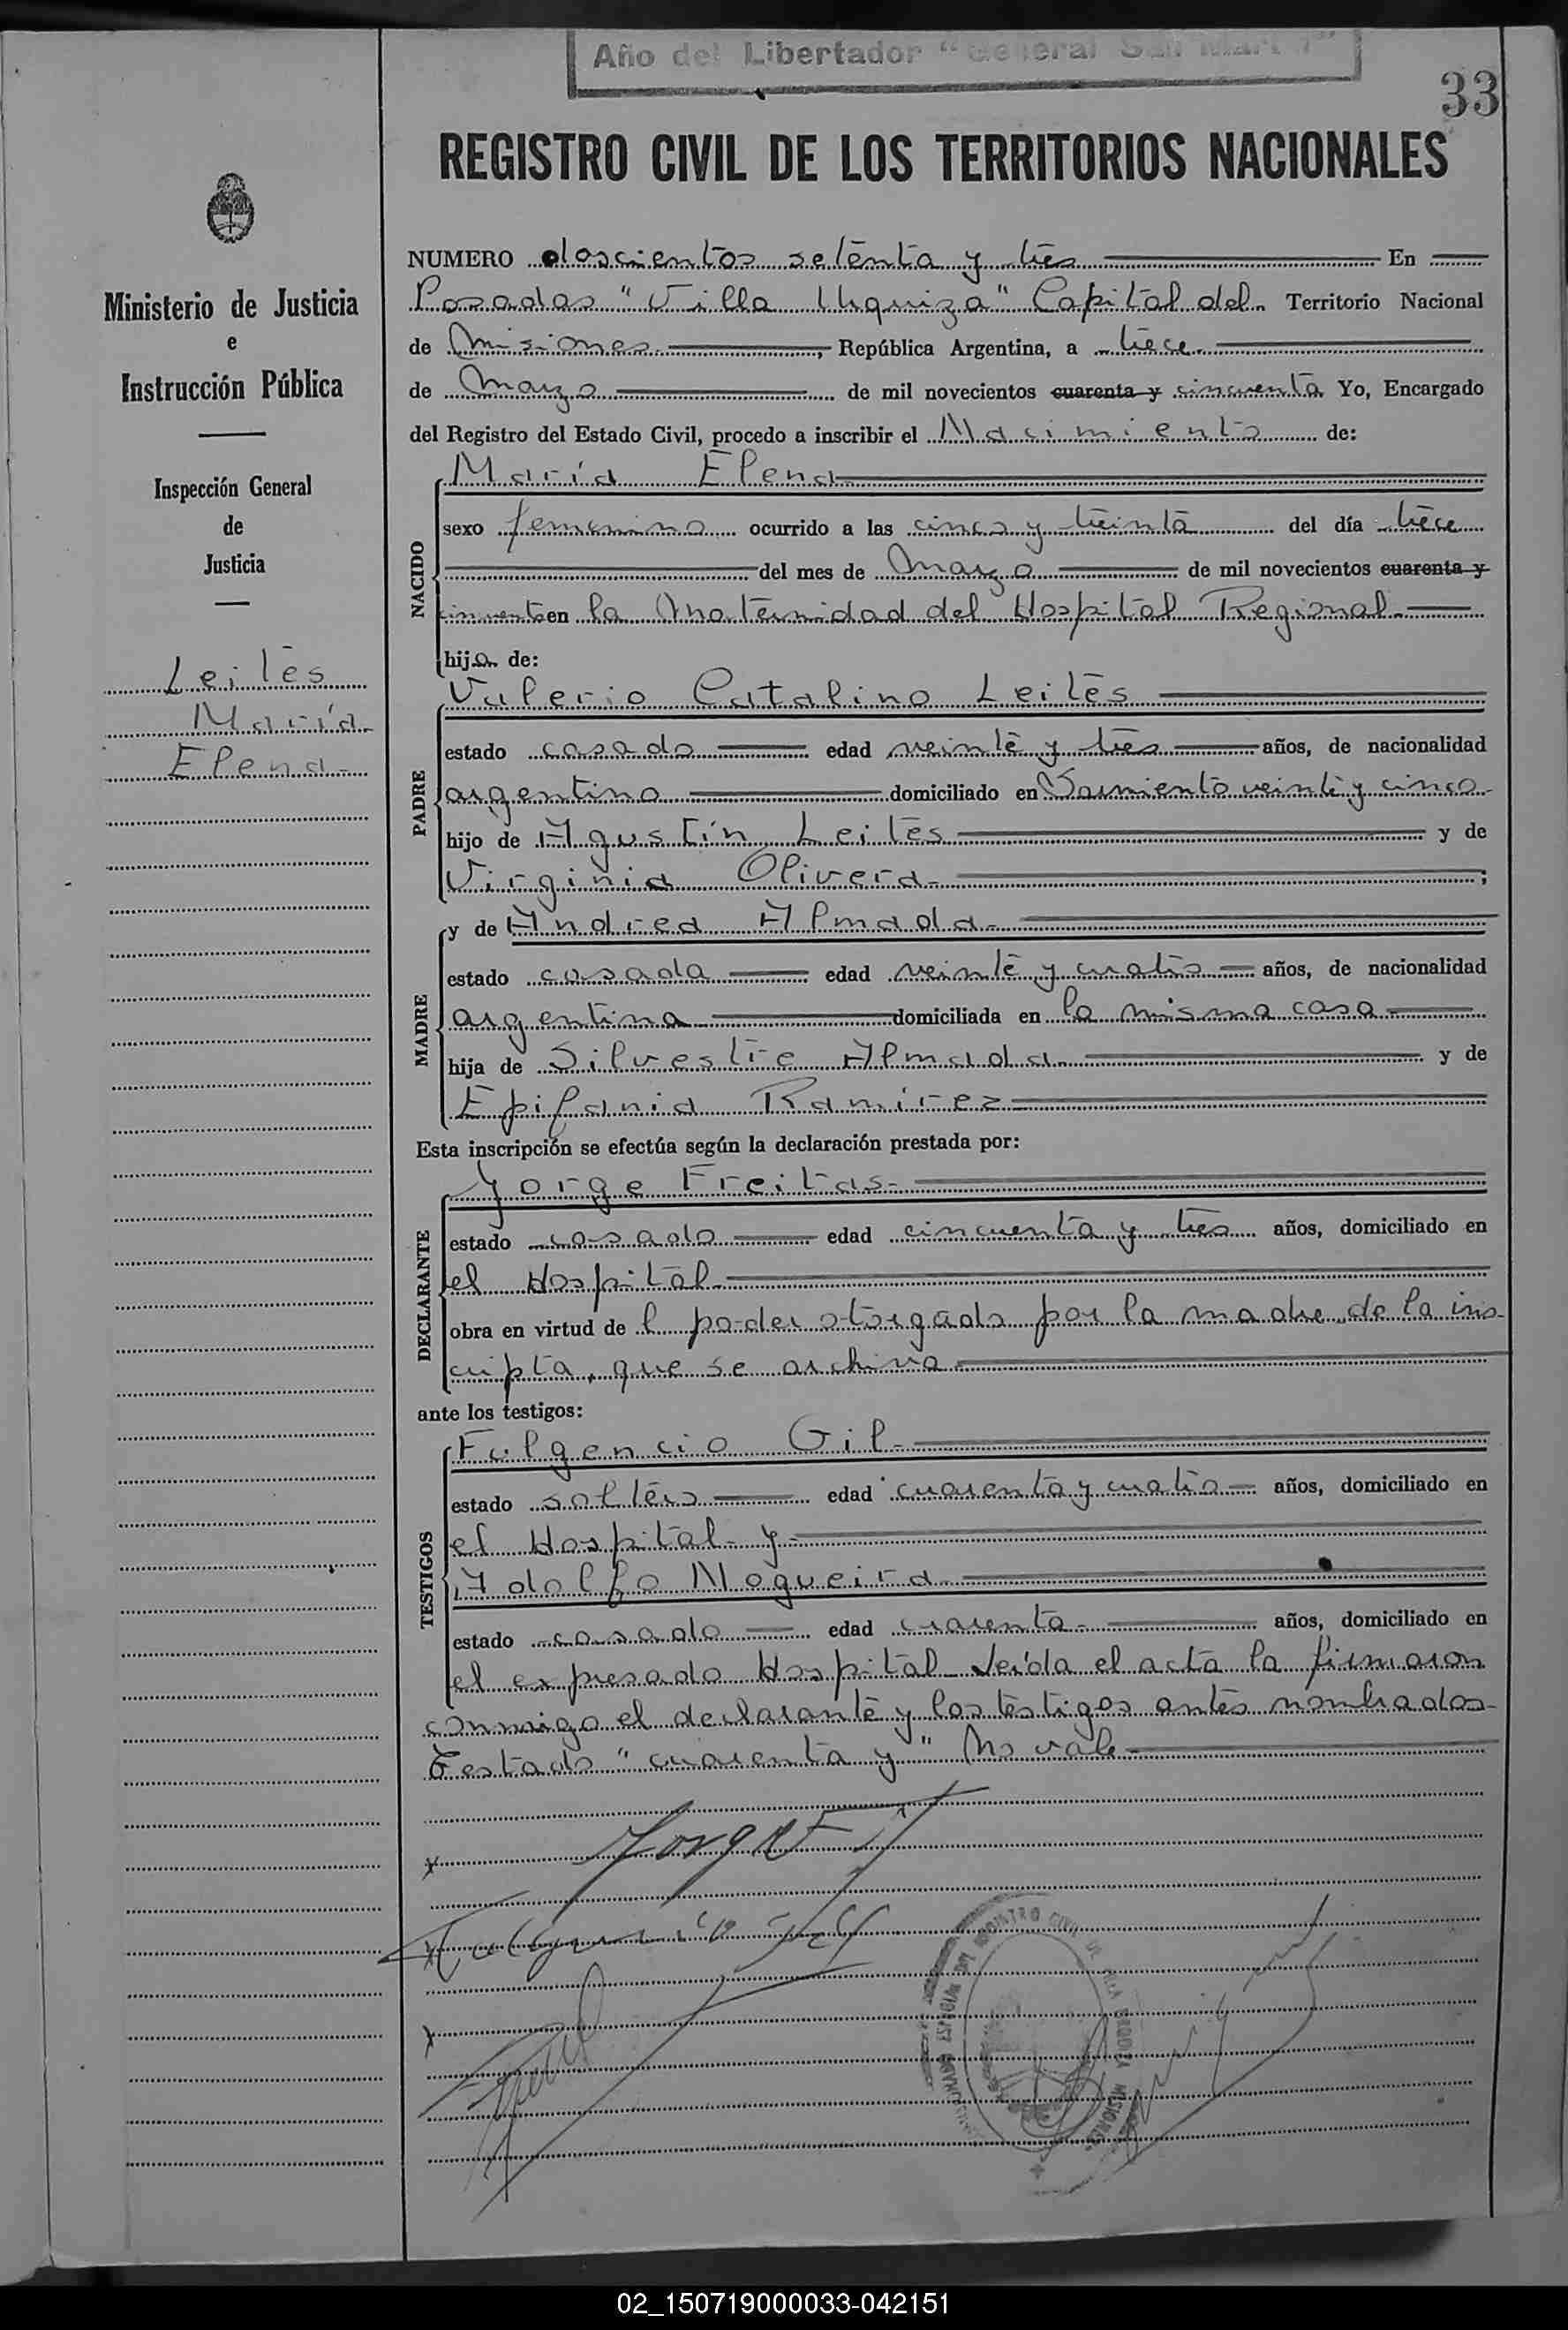 Año del Libertador "General San Martín"
33
REGISTRO CIVIL DE LOS TERRITORIOS NACIONALES
Ministerio de Justicia
e
Instrucción Pública
Inspección General
de
Justicia
Leites
María
Elena
NUMERO doscientos setenta y tres En
Posadas "Villa Urquiza" Capital del Territorio Nacional
de Misiones, República Argentina, a trece
de Marzo de mil novecientos cuarenta y cincuenta Yo, Encargado
del Registro del Estado Civil, procedo a inscribir el Nacimiento de:
NACIDO
María Elena
sexo femenino ocurrido a las cinco y treinta del día trece
del mes de Marzo de mil novecientos cuarenta y
cincuenta en la Maternidad del Hospital Regional
hija de:
PADRE
Valerio Catalino Leites
estado casado edad veinte y tres años, de nacionalidad
argentino domiciliado en Sarmiento veinte y cinco
hijo de Agustín Leites y de
Virginia Olivera;
MADRE
y de Andrea Almada
estado casada edad veinte y cuatro años, de nacionalidad
argentina domiciliada en la misma casa
hija de Silvestre Almada y de
Epifania Ramírez
Esta inscripción se efectúa según la declaración prestada por:
DECLARANTE
Jorge Freitas
estado casado edad cincuenta y tres años, domiciliado en
el Hospital
obra en virtud del poder otorgado por la madre de la ins-
cripta, que se archiva
ante los testigos:
TESTIGOS
Fulgencio Gil
estado soltero edad cuarenta y cuatro años, domiciliado en
el Hospital y
Adolfo Nogueira
estado casado edad cuarenta años, domiciliado en
el expresado Hospital Leída el acta la firmaron
conmigo el declarante y los testigos antes nombrados
Testado "cuarenta y" No vale
Jorge F
Fulgencio Gil
REGISTRO CIVIL DE VILLA URQUIZA MISIONES
02_150719000033-042151